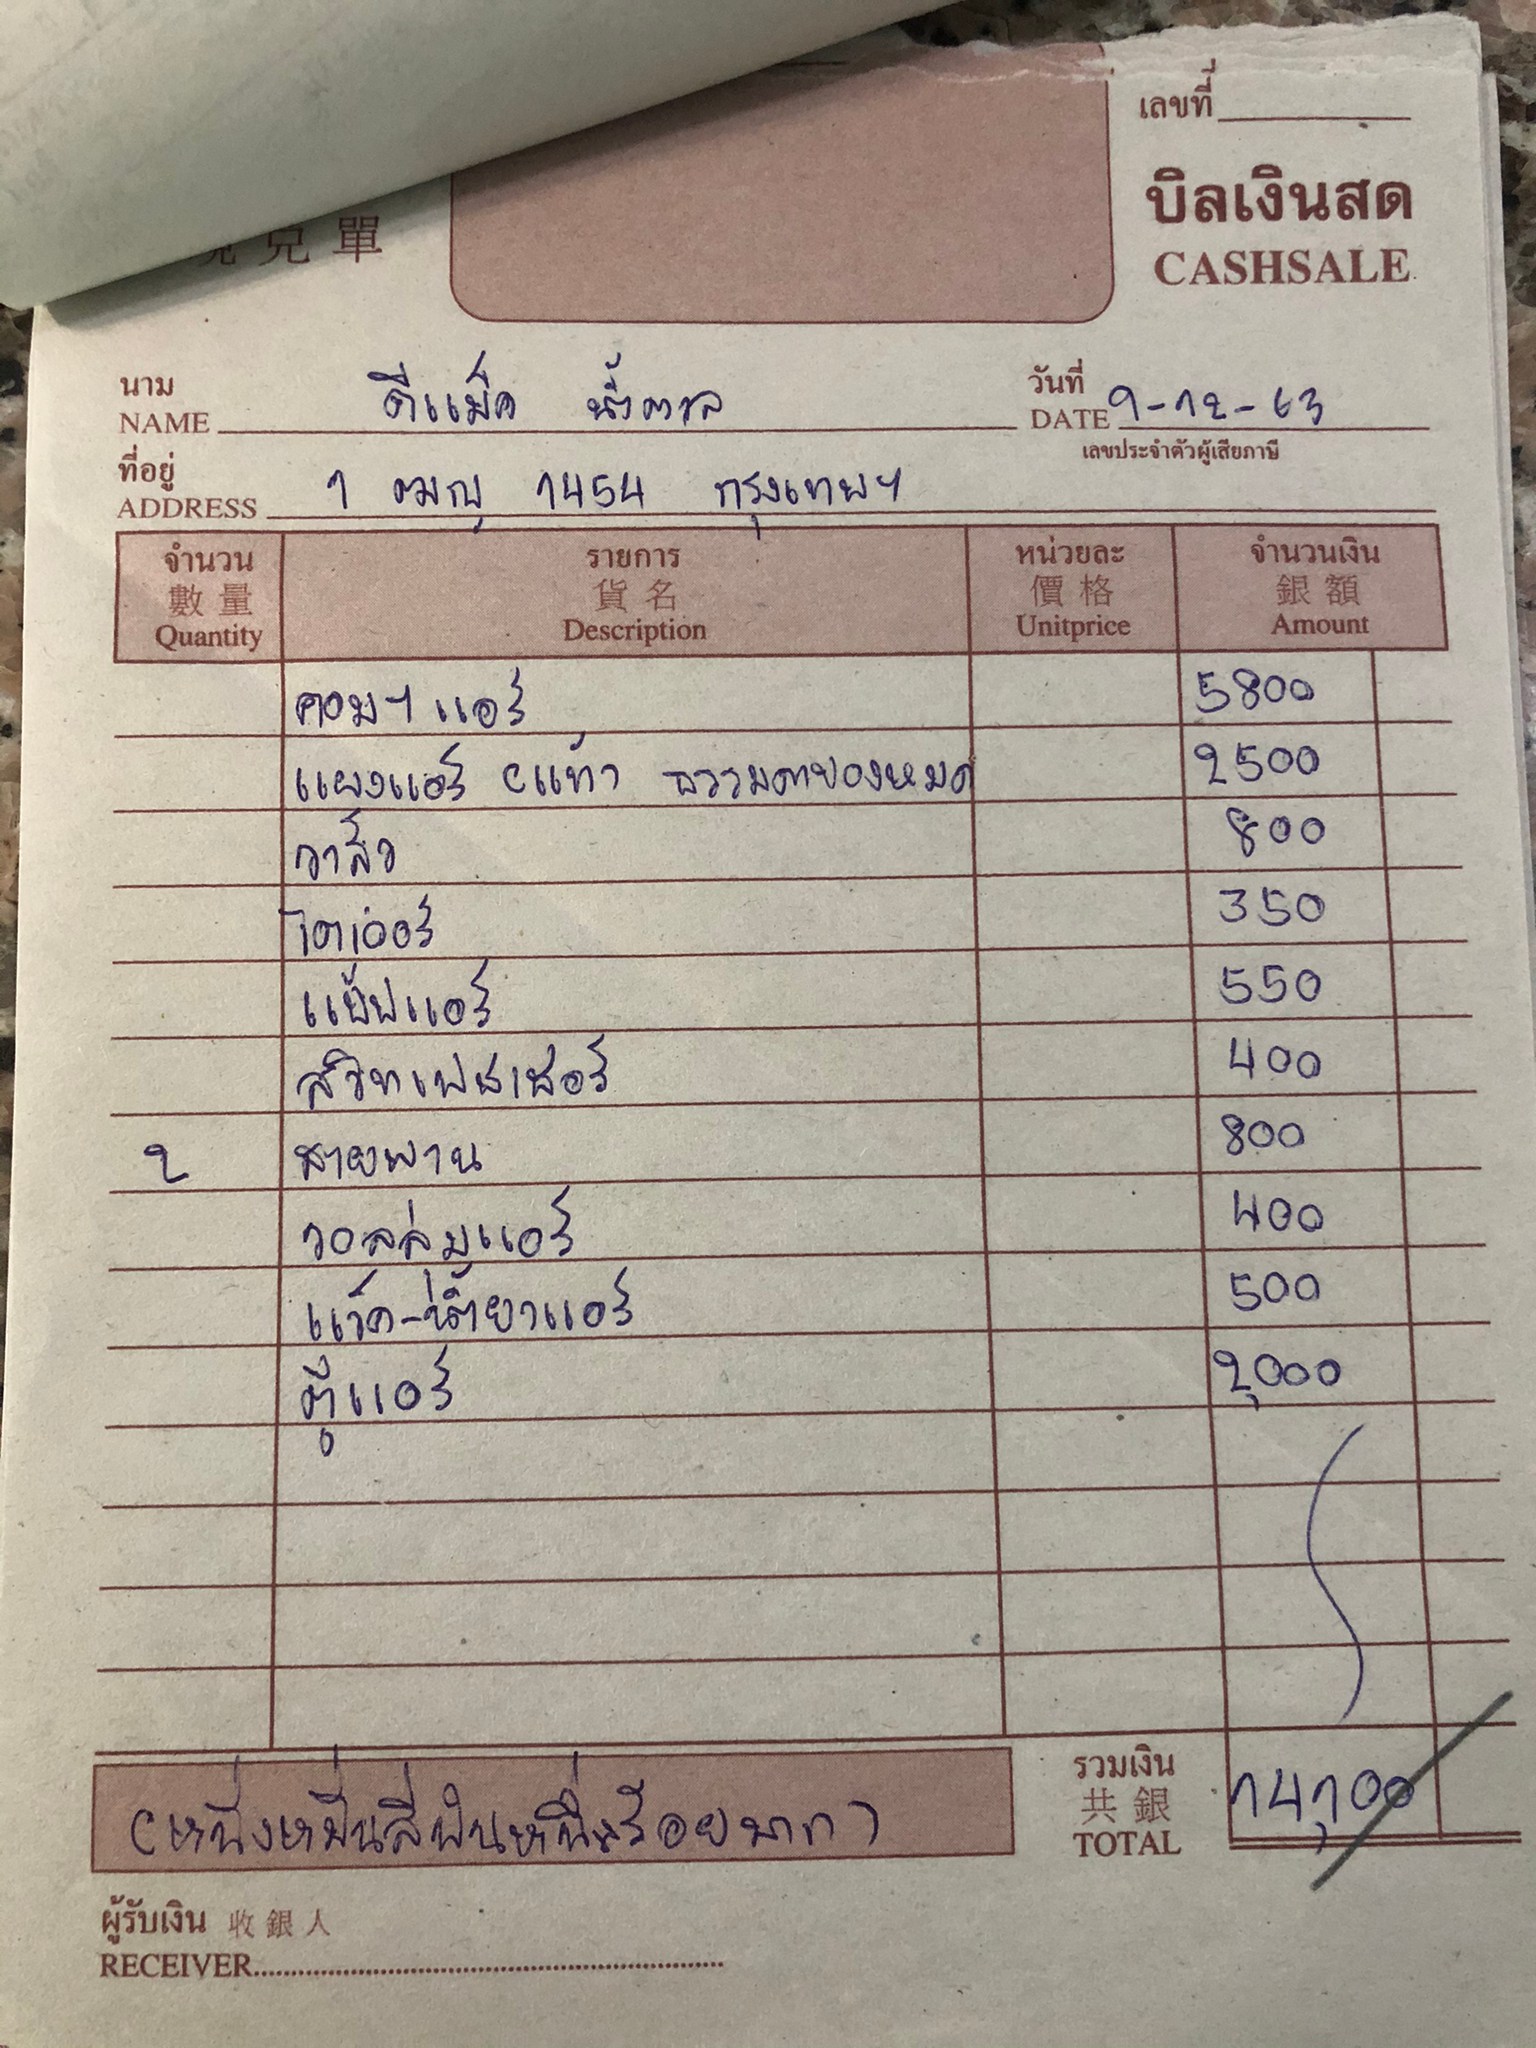 เลขที่
บิลเงินสด
兑 單
CASHSALE
นาม ดีแม็ค น้ำตาล วันที่
NAME DATE 9-12-63
เลขประจำตัวผู้เสียภาษี
ที่อยู่ 1 ฒณ 1454 กรุงเทพฯ
ADDRESS
จำนวน รายการ หน่วยละ จำนวนเงิน
數量 貨名 價格 銀額
Quantity Description Unitprice Amount
คอมฯ แอร์ 5800
แผงแอร์ (แท้) ธรรมดาของหมด 2500
วาล์ว 800
ไดเออร์ 350
แป๊ปแอร์ 550
สวิทเพชเชอร์ 400
2 สายพาน 800
วอลลุ่มแอร์ 400
แว็ค-น้ำยาแอร์ 500
ตู้แอร์ 2,000
รวมเงิน
共銀 14,100
(หนึ่งหมื่นสี่พันหนึ่งร้อยบาท) TOTAL
ผู้รับเงิน 收銀人
RECEIVER